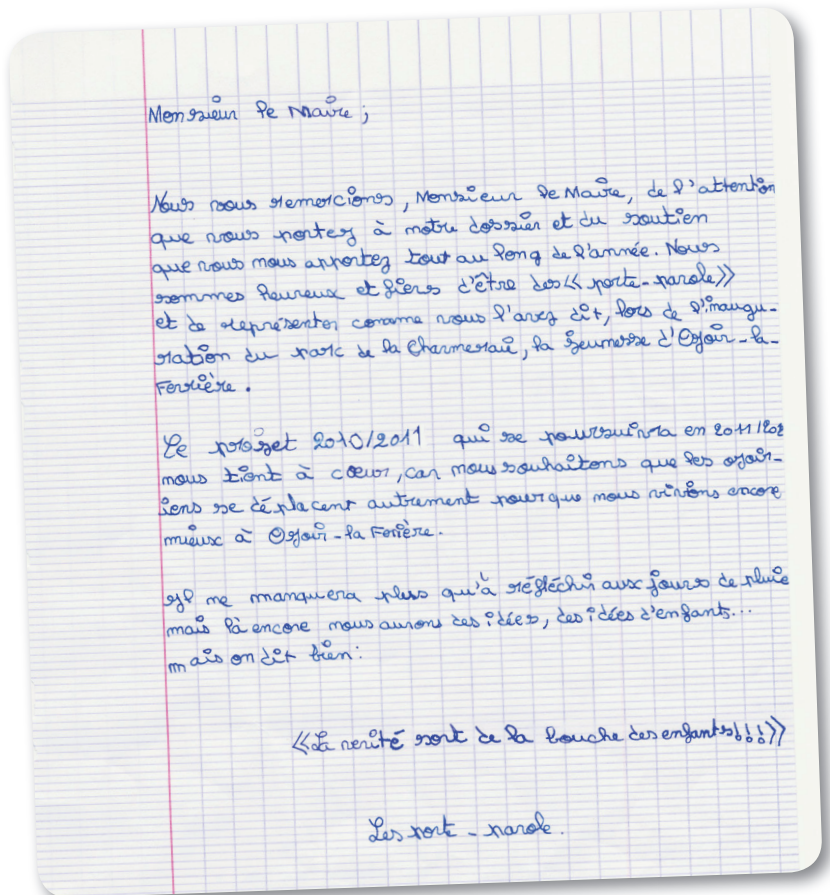 Monsieur le Maire ;
Nous vous remercions, Monsieur le Maire, de l'attention
que vous portez à notre dossier et du soutien
que vous nous apportez tout au long de l'année. Nous
sommes heureux et fiers d'être des << porte-parole >>
et de représenter comme vous l'avez dit, lors de l'inaugu-
ration du parc de la Charmeraie, la jeunesse d'Ozoir-la-
Ferrière.
Le projet 2010/2011 qui se poursuivra en 2011/202
nous tient à cœur, car nous souhaitons que les ozoir-
iens se déplacent autrement pour que nous vivions encore
mieux à Ozoir-la Ferrière.
Il ne manquera plus qu'à réfléchir aux jours de pluie
mais là encore nous aurons des idées, des idées d'enfants...
mais on dit bien :
<< La verité sort de la bouche des enfants!!! >>
Les porte-parole.